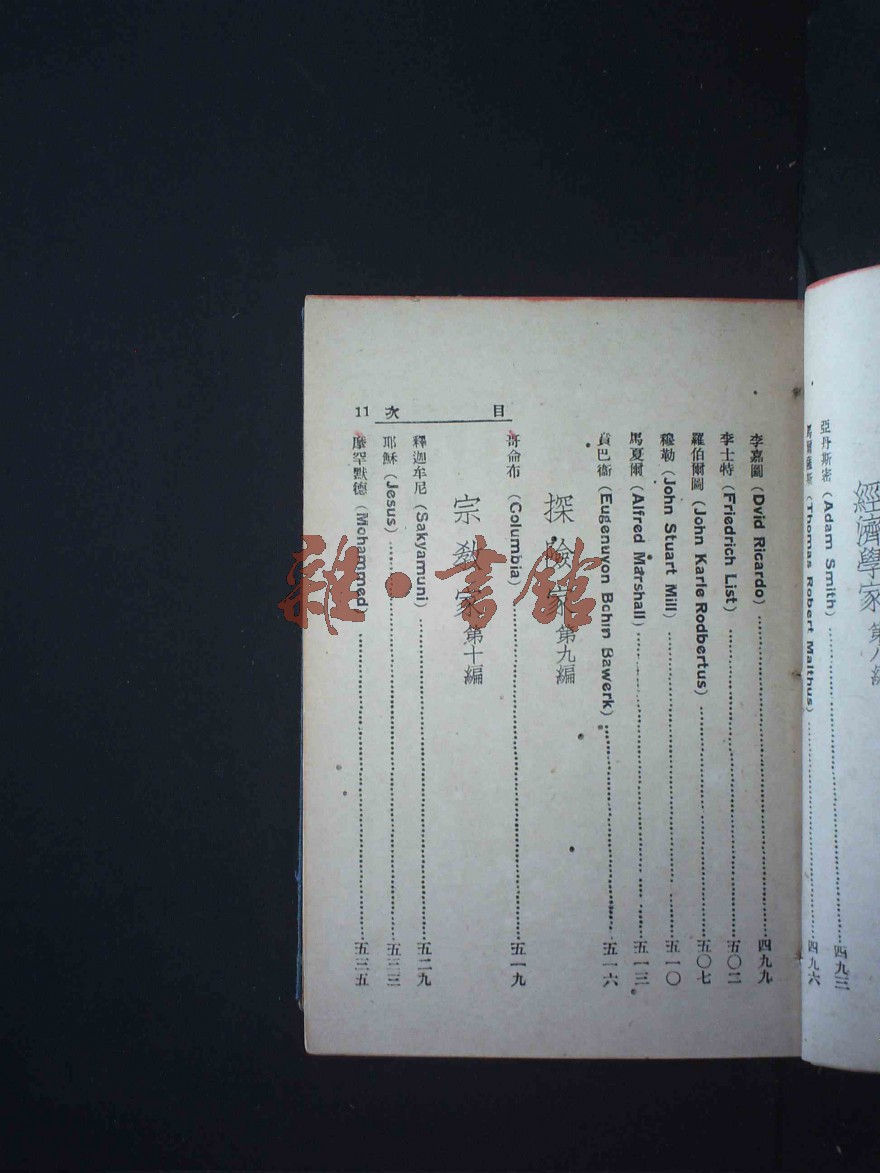 經濟學家 第八編
亞丹斯密 (Adam Smith) 四九三
馬爾薩斯 (Thomas Robert Malthus) 四九六
目 次 11
李嘉圖 (Dvid Ricardo) 四九九
李士特 (Friedrich List) 五〇二
羅伯爾圖 (John Karle Rodbertus) 五〇七
穆勒 (John Stuart Mill) 五一〇
馬夏爾 (Alfred Marshall) 五一三
賁巴衞 (Eugenuyon Bchin Bawerk) 五一六
探險家 第九編
哥侖布 (Columbia) 五一九
宗敎家 第十編
釋迦牟尼 (Sakyamuni) 五二九
耶穌 (Jesus) 五三三
摩罕默德 (Mohammed) 五三五
雜·書館